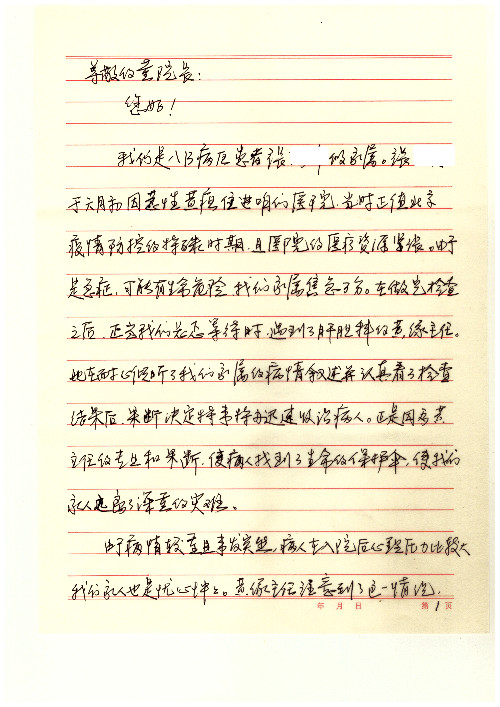 尊敬的黄院长：
您好！
我们是八B病区患者张 的家属。张
于六月初因急性黄疸住进咱们医院，当时正值北京
疫情防控的特殊时期，且医院的医疗资源紧张。由于
是急症，可能有生命危险，我们家属焦急万分。在做完检查
之后，正当我们忐忑等待时，遇到了肝胆科的黄缘主任。
她在耐心倾听了我们家属的病情叙述并认真看了检查
结果后，果断决定特事特办迅速收治病人。正是因为黄
主任的专业和果断，使病人找到了生命的保护伞，使我们
家人远离了深重的灾难。
由于病情较重且事发突然，病人在入院后心理压力比较大
我们家人也是忧心忡忡。黄缘主任注意到了这一情况，
年 月 日 第 1 页